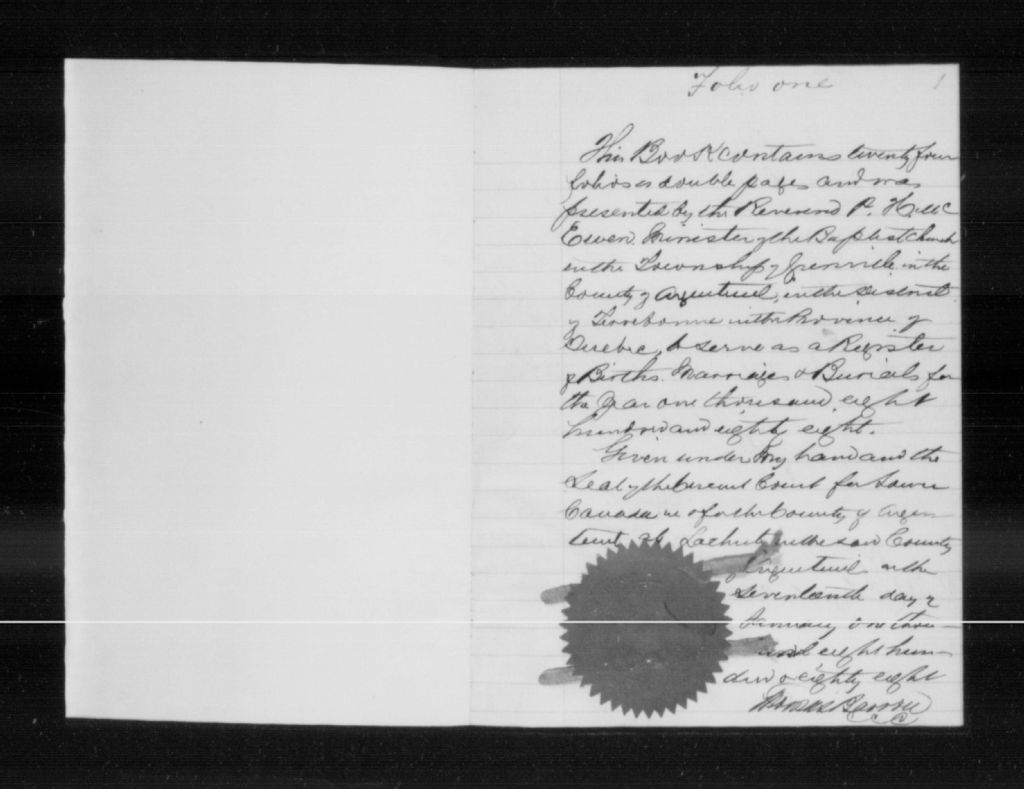 Folio one
1
This Book contains twenty four
folios or double pages and was
presented by the Reverend P. H. Mc
Ewen Minister of the Baptist Church
in the Township of Grenville in the
County of Argenteuil, in the District
of Terrebonne in the Province of
Quebec, to serve as a Register
of Births. Marriages & Burials for
the Year one thousand eight
hundred and eighty eight.
Given under my hand and the
Seal of the Circuit Court for Lower
Canada in & for the County of Argen-
teuil at Lachute in the said County
of Argenteuil on the
Seventeenth day of
January one thou-
sand eight hun-
dred & eighty eight
Barron
C C C